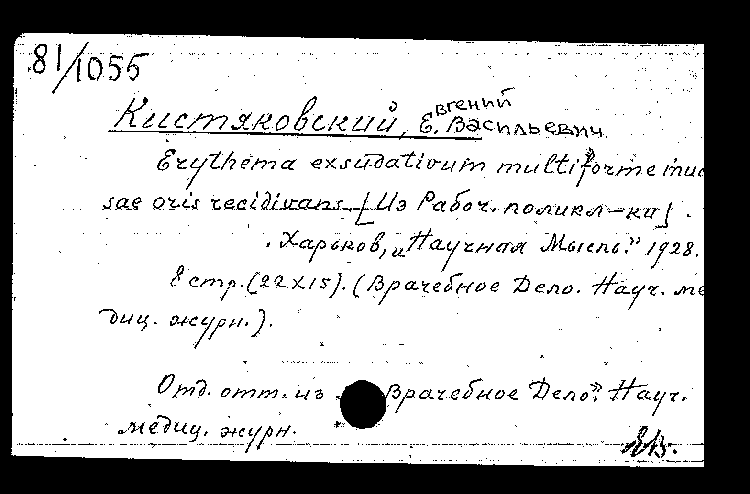 81/1055
Кистяковский, Евгений Васильевич
Erythema exsudativum multiforme muc
sae oris recidivans [Из Рабоч. поликл-ки].
Харьков, „Научная Мысль." 1928.
8 стр. (22x15). (Врачебное Дело. Науч. ме
диц. журн.).
Отд. отт. из Врачебное Дело". Науч.
медиц. журн.